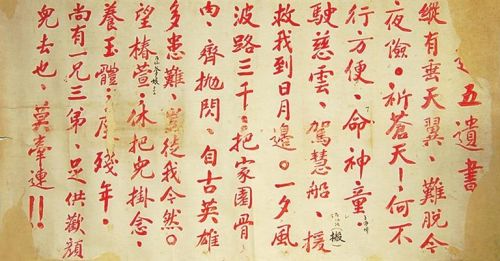 五遺書
縱有垂天翼、難脫今
夜險。祈蒼天！何不
行方便、命神童。
駛慈雲、駕慧船、援
(搬)
救我到日月邊。一夕風
波路三千、把家園骨
肉、齊拋閃。自古英雄
多患難、豈徒我今然。
望椿萱、休把兒掛念、
養玉體；度殘年。
尚有一兄三弟、足供歡顏
兒去也、莫牽連!!